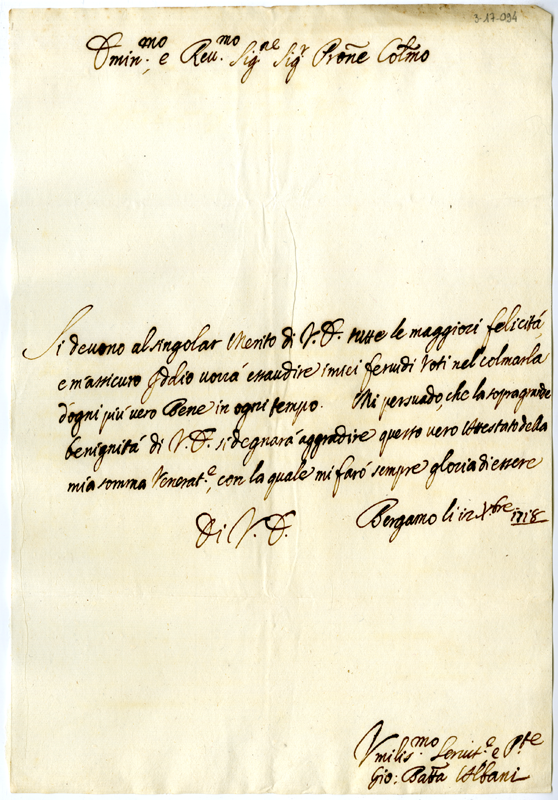 3-17-094
Emin.mo e Reu.mo Sig.ne Sig.r Prōne Colmo
Si deuono al singolar Merito di V. E. tutte le maggiori felicitá
e m'assicuro Iddio vorrá essaudire i miei feruidi Voti nel colmarla
d'ogni piú vero Bene in ogni tempo. Mi persuado, che la sopragrande
benignitá di V. E. si degnará aggradire questo vero Attestato della
mia somma Venerat.e, con la quale mi faró sempre gloria di essere
Di V. E. Bergamo li 12 Xbre 1718
Vmilis.mo Seruit.e e P.te
Gio: Batta Albani